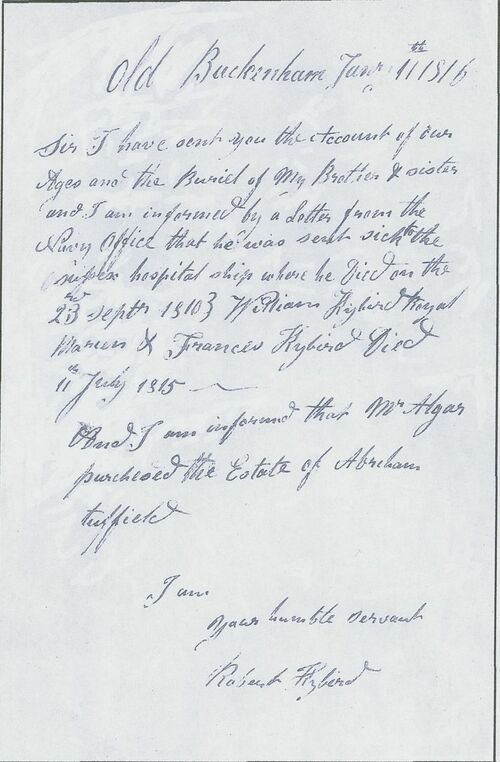 Old Buckenham Jany 11th 1816
Sir I have sent you the Account of our
Ages and the Buriel of My Brother & sister
and I am informed by a Letter from the
Navy Office that he was sent sick to the
hospital ship where he Died on the
23rd septr 1810} William Kyberd Royal
Mareen & Frances Kyberd Died
11th July 1815
And I am informed that Mr Algar
purchesed the Estate of Abreham
tuffield
I am
Your humble servant
Robert Kyberd